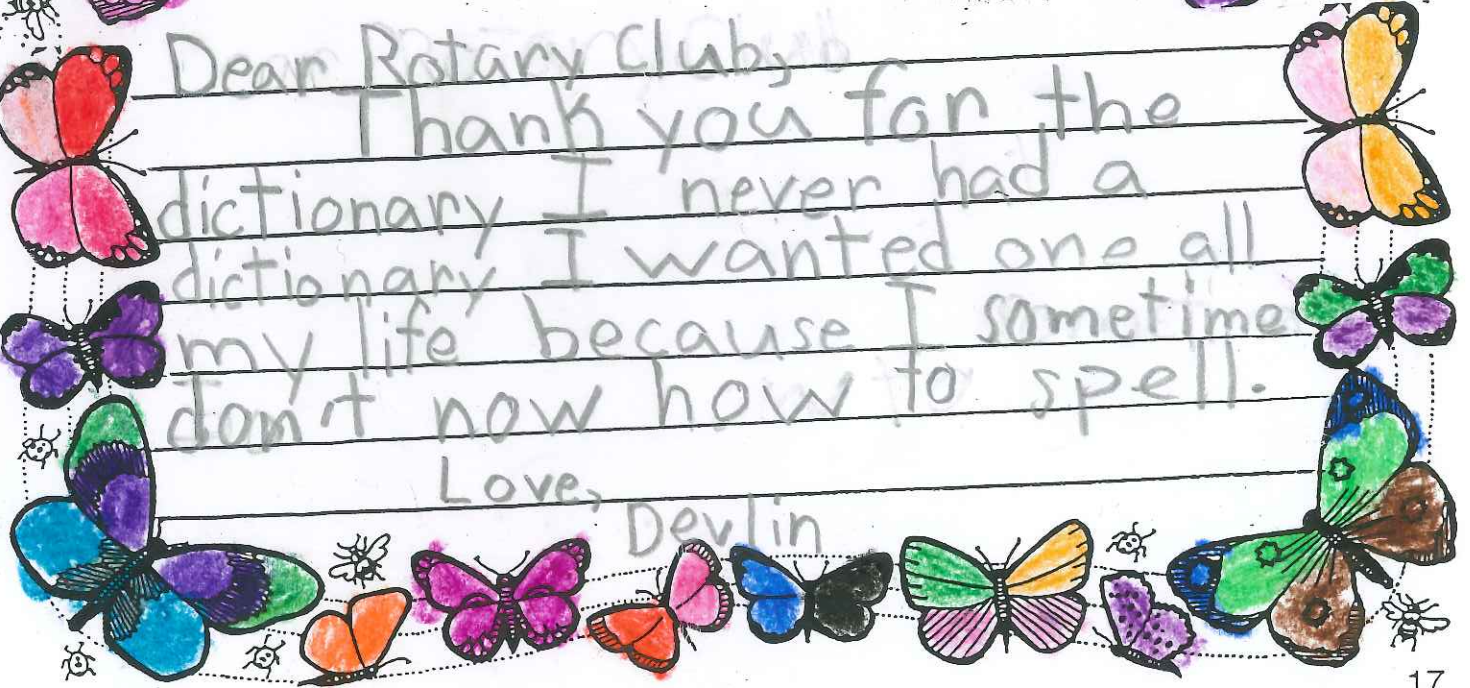 Dear Rotary Club,
Thank you for the
dictionary I never had a
dictionary I wanted one all
my life because I sometime
don't now how to spell.
Love,
Devlin
17